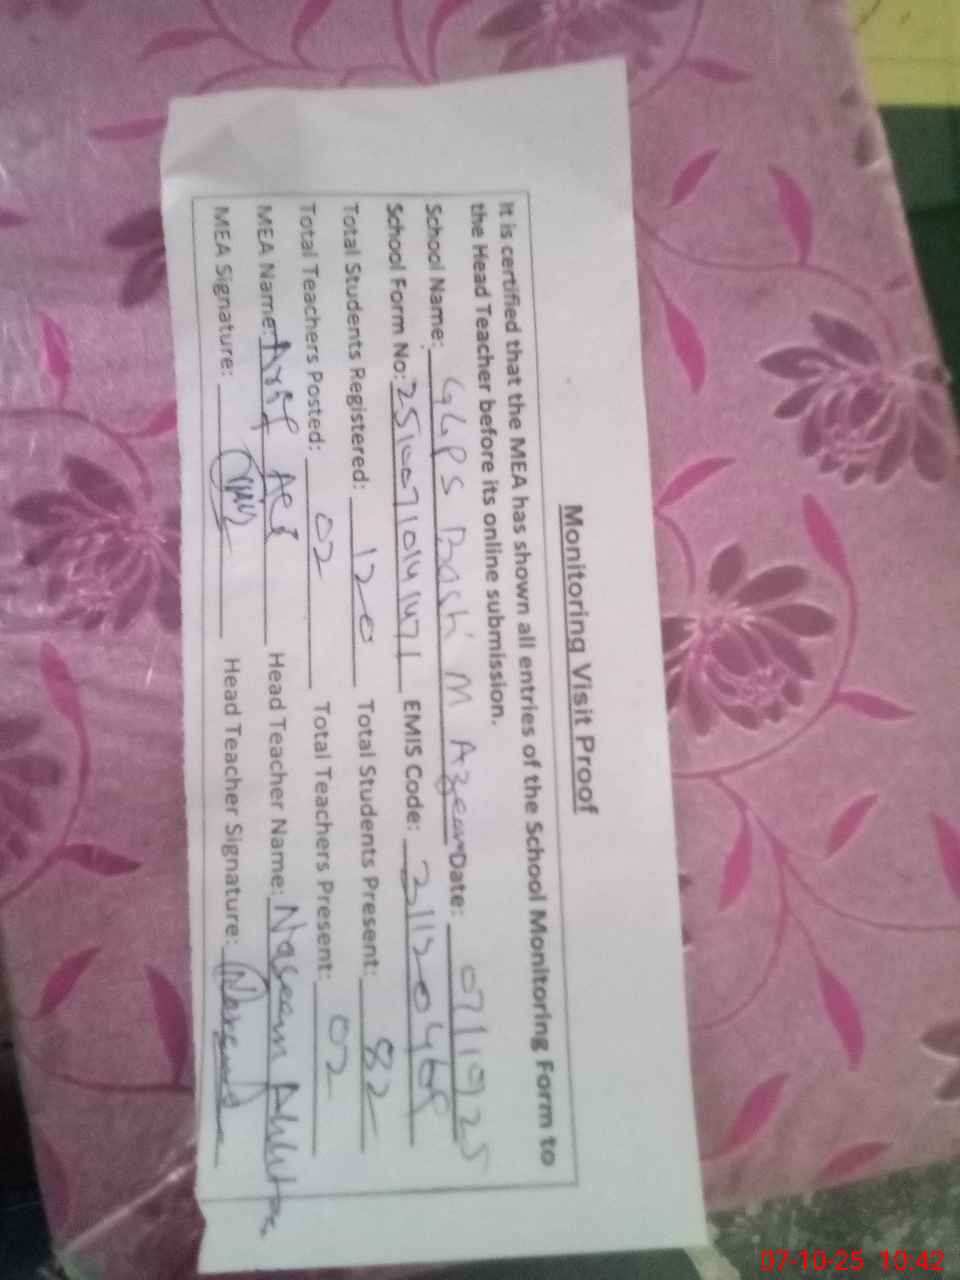 Monitoring Visit Proof
It is certified that the MEA has shown all entries of the School Monitoring Form to
the Head Teacher before its online submission.
School Name: GGPS Basti M Azeem Date: 07/10/25
School Form No: EMIS Code:
Total Students Registered: 120 Total Students Present: 82
Total Teachers Posted: 02 Total Teachers Present: 02
MEA Name: Arif Head Teacher Name: Naseem
MEA Signature: Head Teacher Signature:
07-10-25 10:42